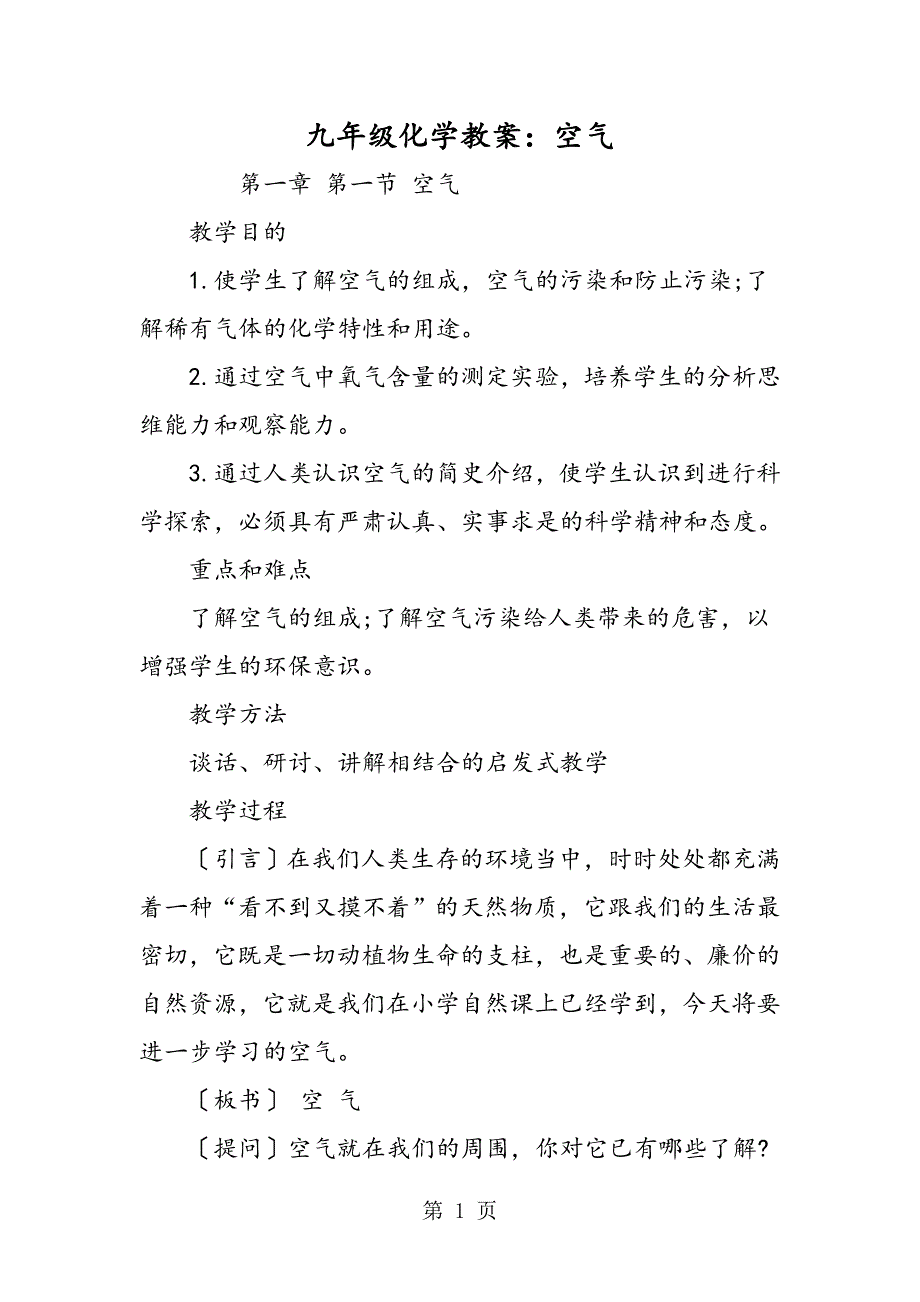 九年级化学教案：空气
第一章 第一节 空气
教学目的
1.使学生了解空气的组成，空气的污染和防止污染;了
解稀有气体的化学特性和用途。
2.通过空气中氧气含量的测定实验，培养学生的分析思
维能力和观察能力。
3.通过人类认识空气的简史介绍，使学生认识到进行科
学探索，必须具有严肃认真、实事求是的科学精神和态度。
重点和难点
了解空气的组成;了解空气污染给人类带来的危害，以
增强学生的环保意识。
教学方法
谈话、研讨、讲解相结合的启发式教学
教学过程
〔引言〕在我们人类生存的环境当中，时时处处都充满
着一种“看不到又摸不着”的天然物质，它跟我们的生活最
密切，它既是一切动植物生命的支柱，也是重要的、廉价的
自然资源，它就是我们在小学自然课上已经学到，今天将要
进一步学习的空气。
〔板书〕 空 气
〔提问〕空气就在我们的周围，你对它已有哪些了解?
第 1 页